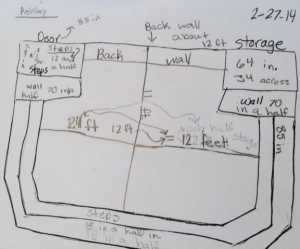 Ashley
2-27-14
85 in
Door
Back wall
about
12 ft
storage
steps
12 and
steps a half
Back
wall
64 in.
34 across
wall 70 in
half
wall 70
in a half
85 in
24 ft
12 ft
= 12 feet
half
stage
steps
in a half in
in a half